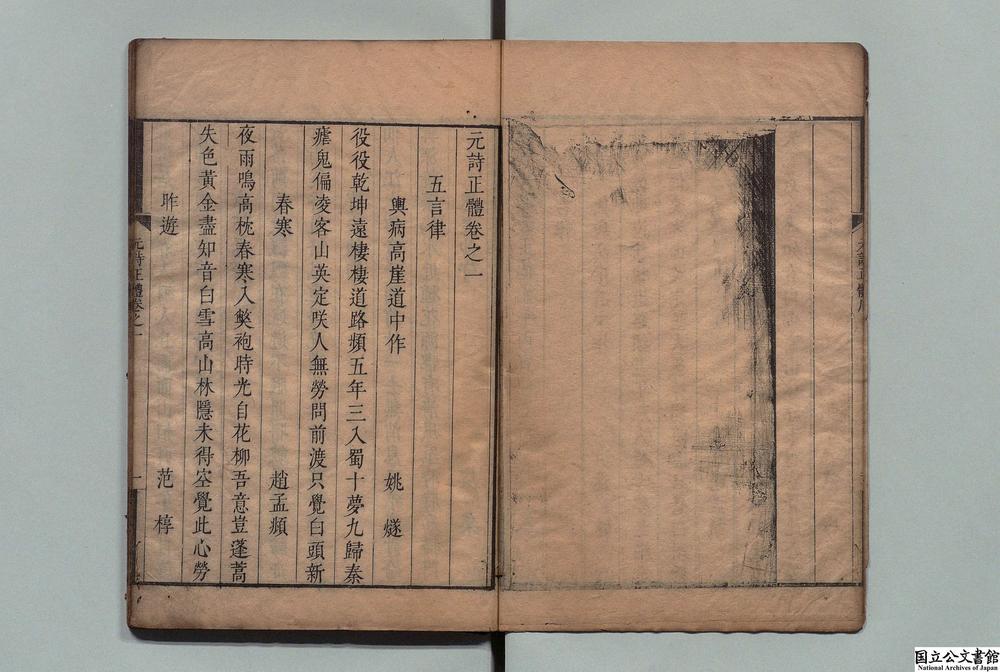 元詩正體卷之一
五言律
輿病高崖道中作
姚燧
役役乾坤遠棲棲道路頻五年三入蜀十夢九歸秦
瘧鬼偏凌客山英定咲人無勞問前渡只覺白頭新
春寒
趙孟頫
夜雨鳴高枕春寒入敝袍時光自花柳吾意豈蓬蒿
失色黃金盡知音白雪高山林隱未得空覺此心勞
昨遊
范梈
元詩正體卷之一
一
国立公文書館
National Archives of Japan